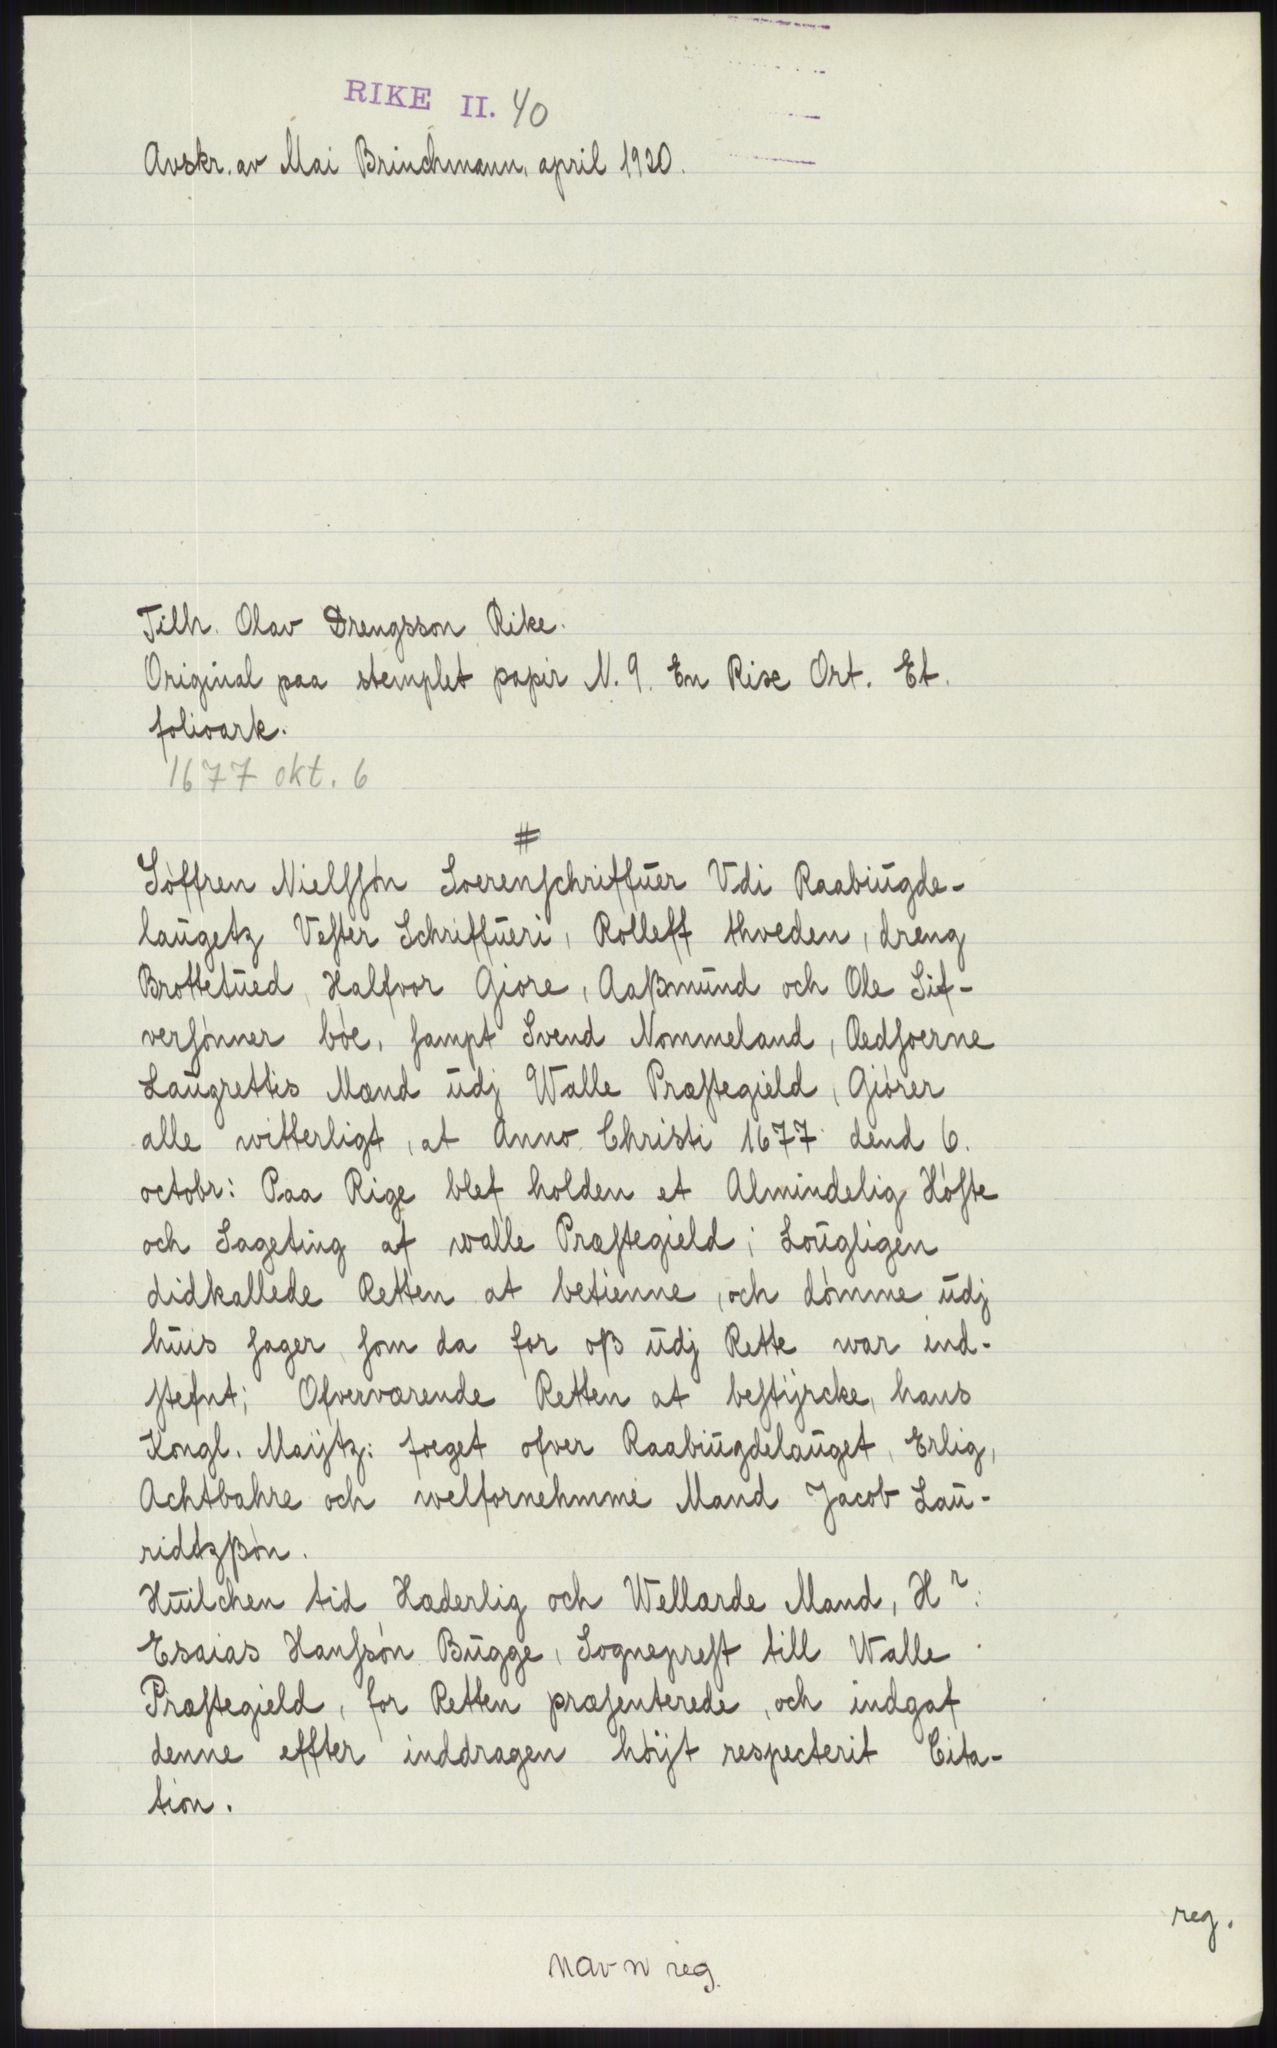 RIKE II. 40
Avskr. av Mai Brinchmann, april 1920.
Tilh. Olav Drengsson Rike.
Original paa stemplet papir N. 9. En Rixe Ort. Et.
folioark.
1677 okt. 6
#
Søffren Nielſſøn Soerenſchriffuer Vdi Raabiugde-
laugetz Veſter Schriffueri, Rolleff thveden, dreng
Brottetued, Halfvor Giøre, Aaßmund och Ole Sif-
verſønner bøe, ſampt Svend Nommeland, Aedſoerne
Laugrettis Mænd udj Walle Præſtegield, Giører
alle witterligt, at Anno Christi 1677 dend 6.
octobr: Paa Rige blef holden et Almindelig Høſte
och Sageting af walle Præſtegield; Lougligen
didkallede Retten at betienne, och dømme udj
huis ſager, ſom da for oß udj Rette war ind-
ſtefnt; Ofverværende Retten at beſtÿrcke, hans
Kongl. Maÿtz: foeget ofver Raabiugdelauget, Erlig,
Achtbahre och welfornehmme Mand Jacob Lau-
ridtzßøn.
Huilchen tid Hæderlig och Wellærde Mand, Hr:
Esaias Hanſsøn Bugge, Sognepreſt till Walle
Præſtegield, for Retten præſenterede, och indgaf
denne effter inddragen høÿt respecterit Cita-
tion.
reg.
navn reg.